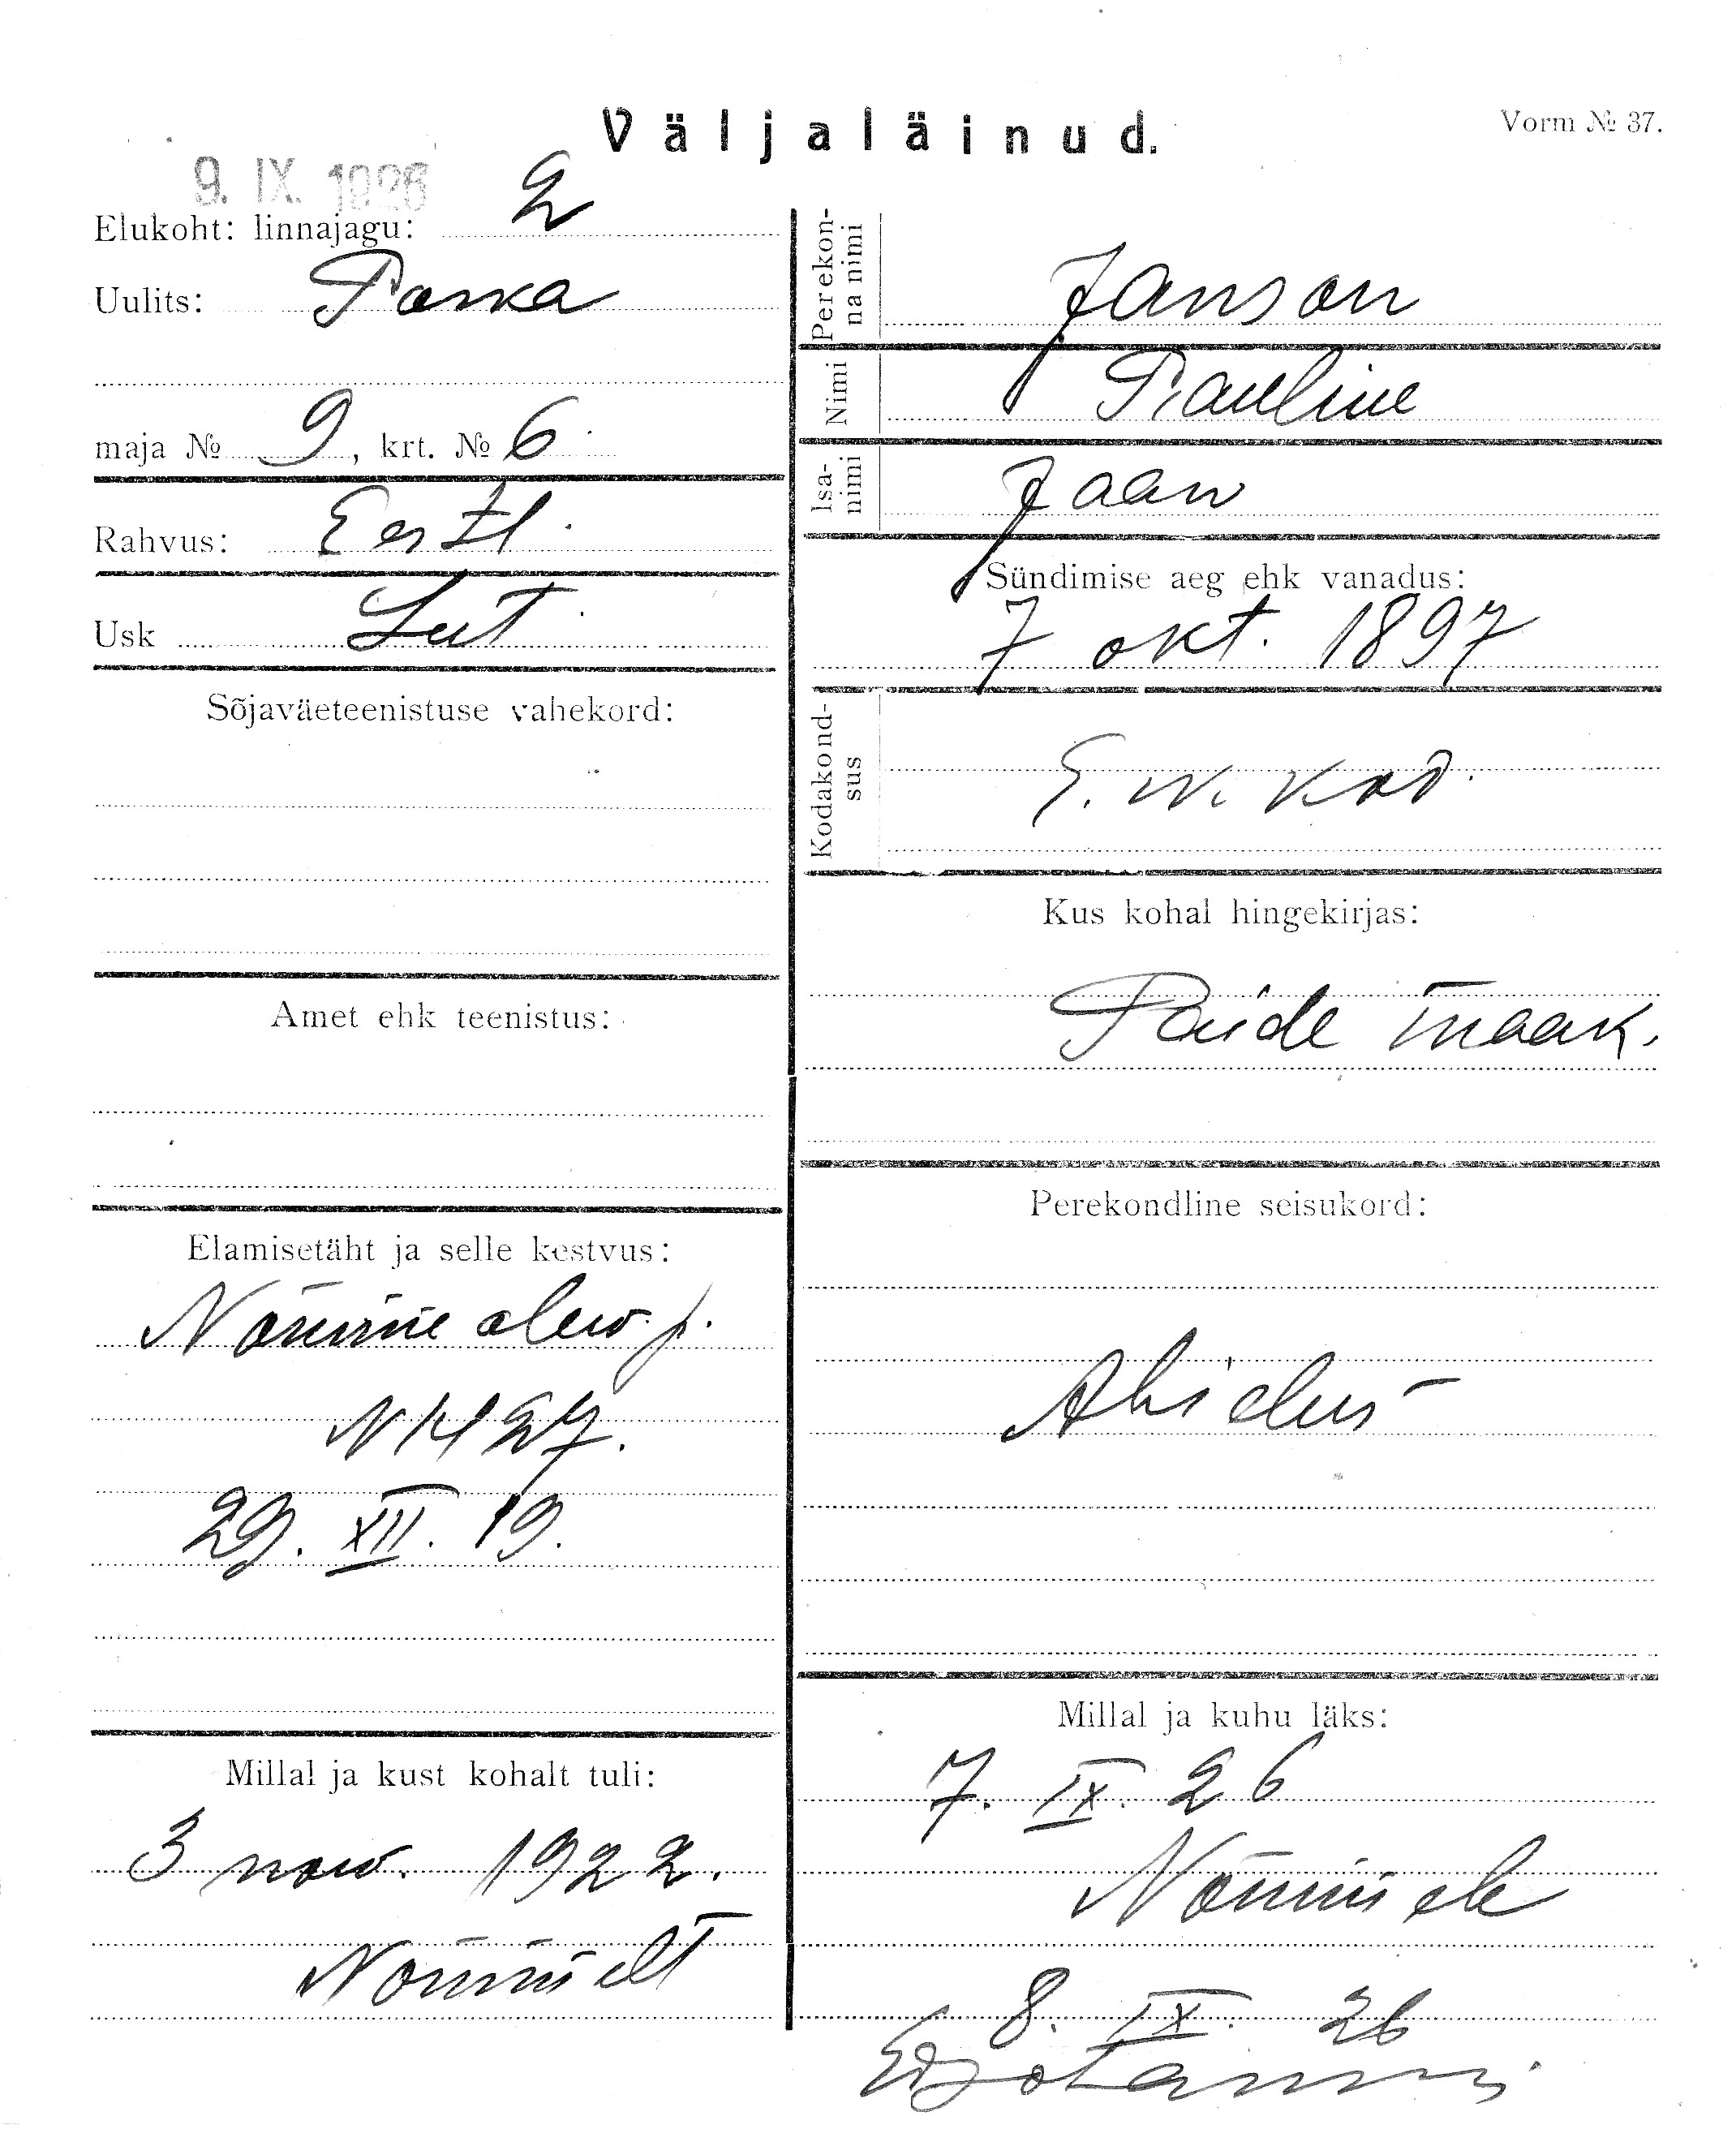 Väljaläinud.
Vorm № 37.
9. IX. 1926
Elukoht: linnajagu: 2
Uulits: Poska
maja № 9, krt. № 6.
Rahvus: Eestl.
Usk Lut.
Sõjaväeteenistuse vahekord:
Amet ehk teenistus:
Elamisetäht ja selle kestvus:
Nõmme alew. p.
N 1427.
29. XII. 19.
Millal ja kust kohalt tuli:
3 now. 1922.
Nõmmelt
Perekon-
na nimi
Janson
Nimi Pauline
Isa-
nimi
Jaan
Sündimise aeg ehk vanadus:
7 okt. 1897
Kodakond-
sus
E. W. kod.
Kus kohal hingekirjas:
Paide maak.
Perekondline seisukord:
Abielus
Millal ja kuhu läks:
7. IX. 26
Nõmmele
8. IX. 26